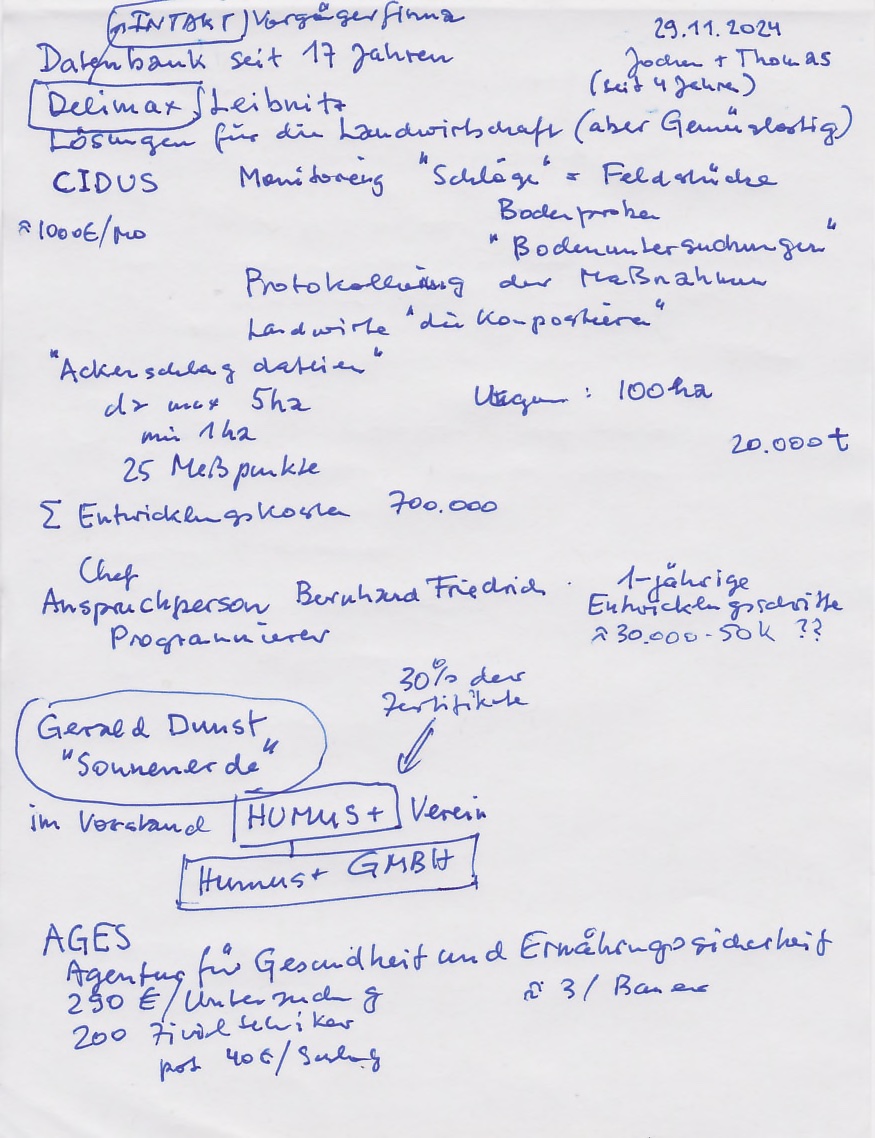 "INTAKT" Vorgägerfirma
29.11.2024
Datenbank seit 17 Jahren
Jochen + Thomas
(seit 4 Jahre)
Delimax / Leibnitz
Lösungen für die Landwirtschaft (aber Gemüselastig)
CIDUS Monitoring "Schläge" = Feldstücke
Bodenproben
≈ 1000€/Mo
"Bodenuntersuchungen"
Protokollierung der Maßnahmen
Landwirte "die Kompostieren"
"Ackerschlag dateien"
da max 5ha
Ungarn : 100ha
min 1ha
20.000 t
25 Meßpunkte
Σ Entwicklungskosten 700.000
Chef
Ansprechperson Bernhard Friedrich
Programmierer
1-jährige
Entwicklungsschritte
≈ 30.000 - 50K ??
30% der
Zertifikate
Gerald Dunst
"Sonnenerde"
im Vorstand HUMUS+ Verein
Humus+ GMBH
AGES
Agentur für Gesundheit und Ernährungssicherheit
290 €/Untersuchung
≈ 3/ Bauer
200 Ziviltechniker
40€/